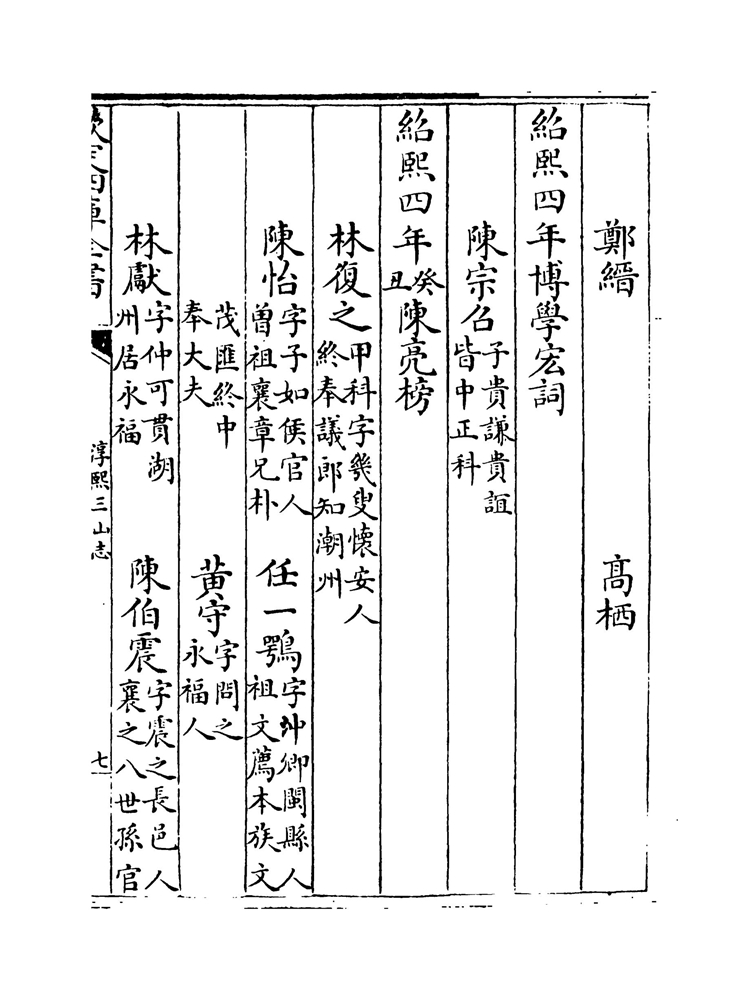 鄭縉　高栖
紹熙四年博學宏詞
陳宗召子貴謙貴誼
皆中正科
紹熙四年癸丑陳亮榜
林復之甲科字㡬叟懐安人
終奉議郎知潮州
陳怡字子如侯官人
曽祖襄章兄朴
任一鶚字仲卿閩縣人
祖文薦本族文
茂匯終中
奉大夫
黄守字問之
永福人
林獻字仲可貫湖
州居永福
陳伯震字震之長邑人
襄之八世孫官
欽定四庫全書
淳熙三山志
七